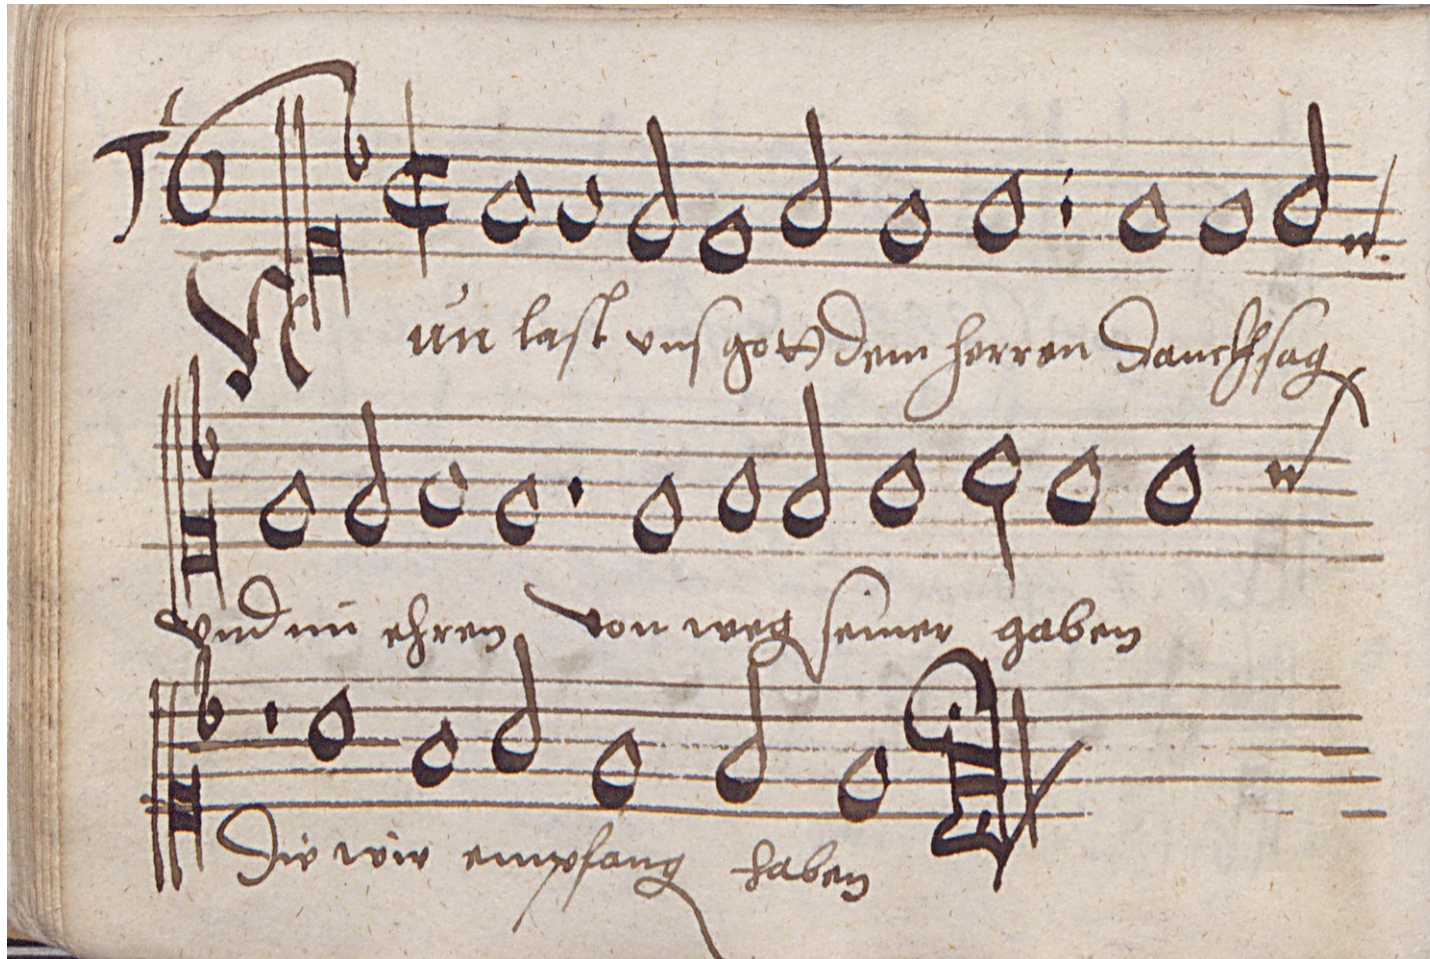 Nun last vns gott dem herren Danckhsag
vnd im ehren von weg seiner gaben
Die wir empfang haben